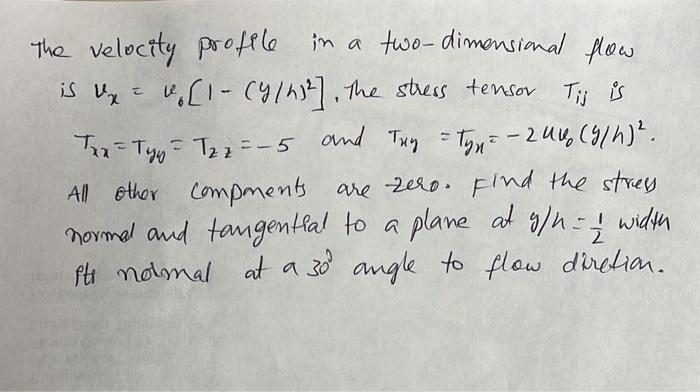 The velocity profile in a two-dimensional flow
is uₓ = v₀[1 - (y/h)²], The stress tensor Tij is
Txx = Tyy = Tzz = -5 and Txy = Tyx = -2uv₀(y/h)².
All other components are zero. Find the stress
normal and tangential to a plane at y/h = 1/2 width
its normal at a 30° angle to flow diretion.